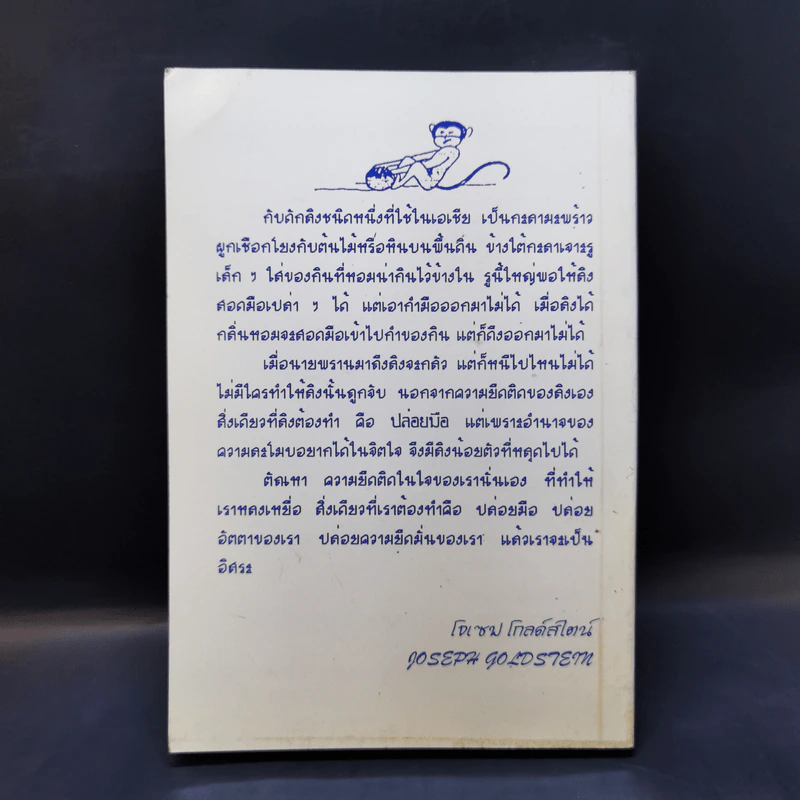 กับดักลิงชนิดหนึ่งที่ใช้ในเอเชีย เป็นกะลามะพร้าว
ผูกเชือกโยงกับต้นไม้หรือหินบนพื้นดิน ข้างใต้กะลาเจาะรู
เล็ก ๆ ใส่ของกินที่หอมน่ากินไว้ข้างใน รูนี้ใหญ่พอให้ลิง
สอดมือเปล่า ๆ ได้ แต่เอากำมือออกมาไม่ได้ เมื่อลิงได้
กลิ่นหอมจะสอดมือเข้าไปกำของกิน แต่ก็ดึงออกมาไม่ได้
เมื่อนายพรานมาถึงลิงจะกลัว แต่ก็หนีไปไหนไม่ได้
ไม่มีใครทำให้ลิงนั้นถูกจับ นอกจากความยึดติดของลิงเอง
สิ่งเดียวที่ลิงต้องทำ คือ ปล่อยมือ แต่เพราะอำนาจของ
ความละโมบอยากได้ในจิตใจ จึงมีลิงน้อยตัวที่หลุดไปได้
ตัณหา ความยึดติดในใจของเรานั่นเอง ที่ทำให้
เราหลงเหยื่อ สิ่งเดียวที่เราต้องทำคือ ปล่อยมือ ปล่อย
อัตตาของเรา ปล่อยความยึดมั่นของเรา แล้วเราจะเป็น
อิสระ
โจเซฟ โกลด์สไตน์
JOSEPH GOLDSTEIN